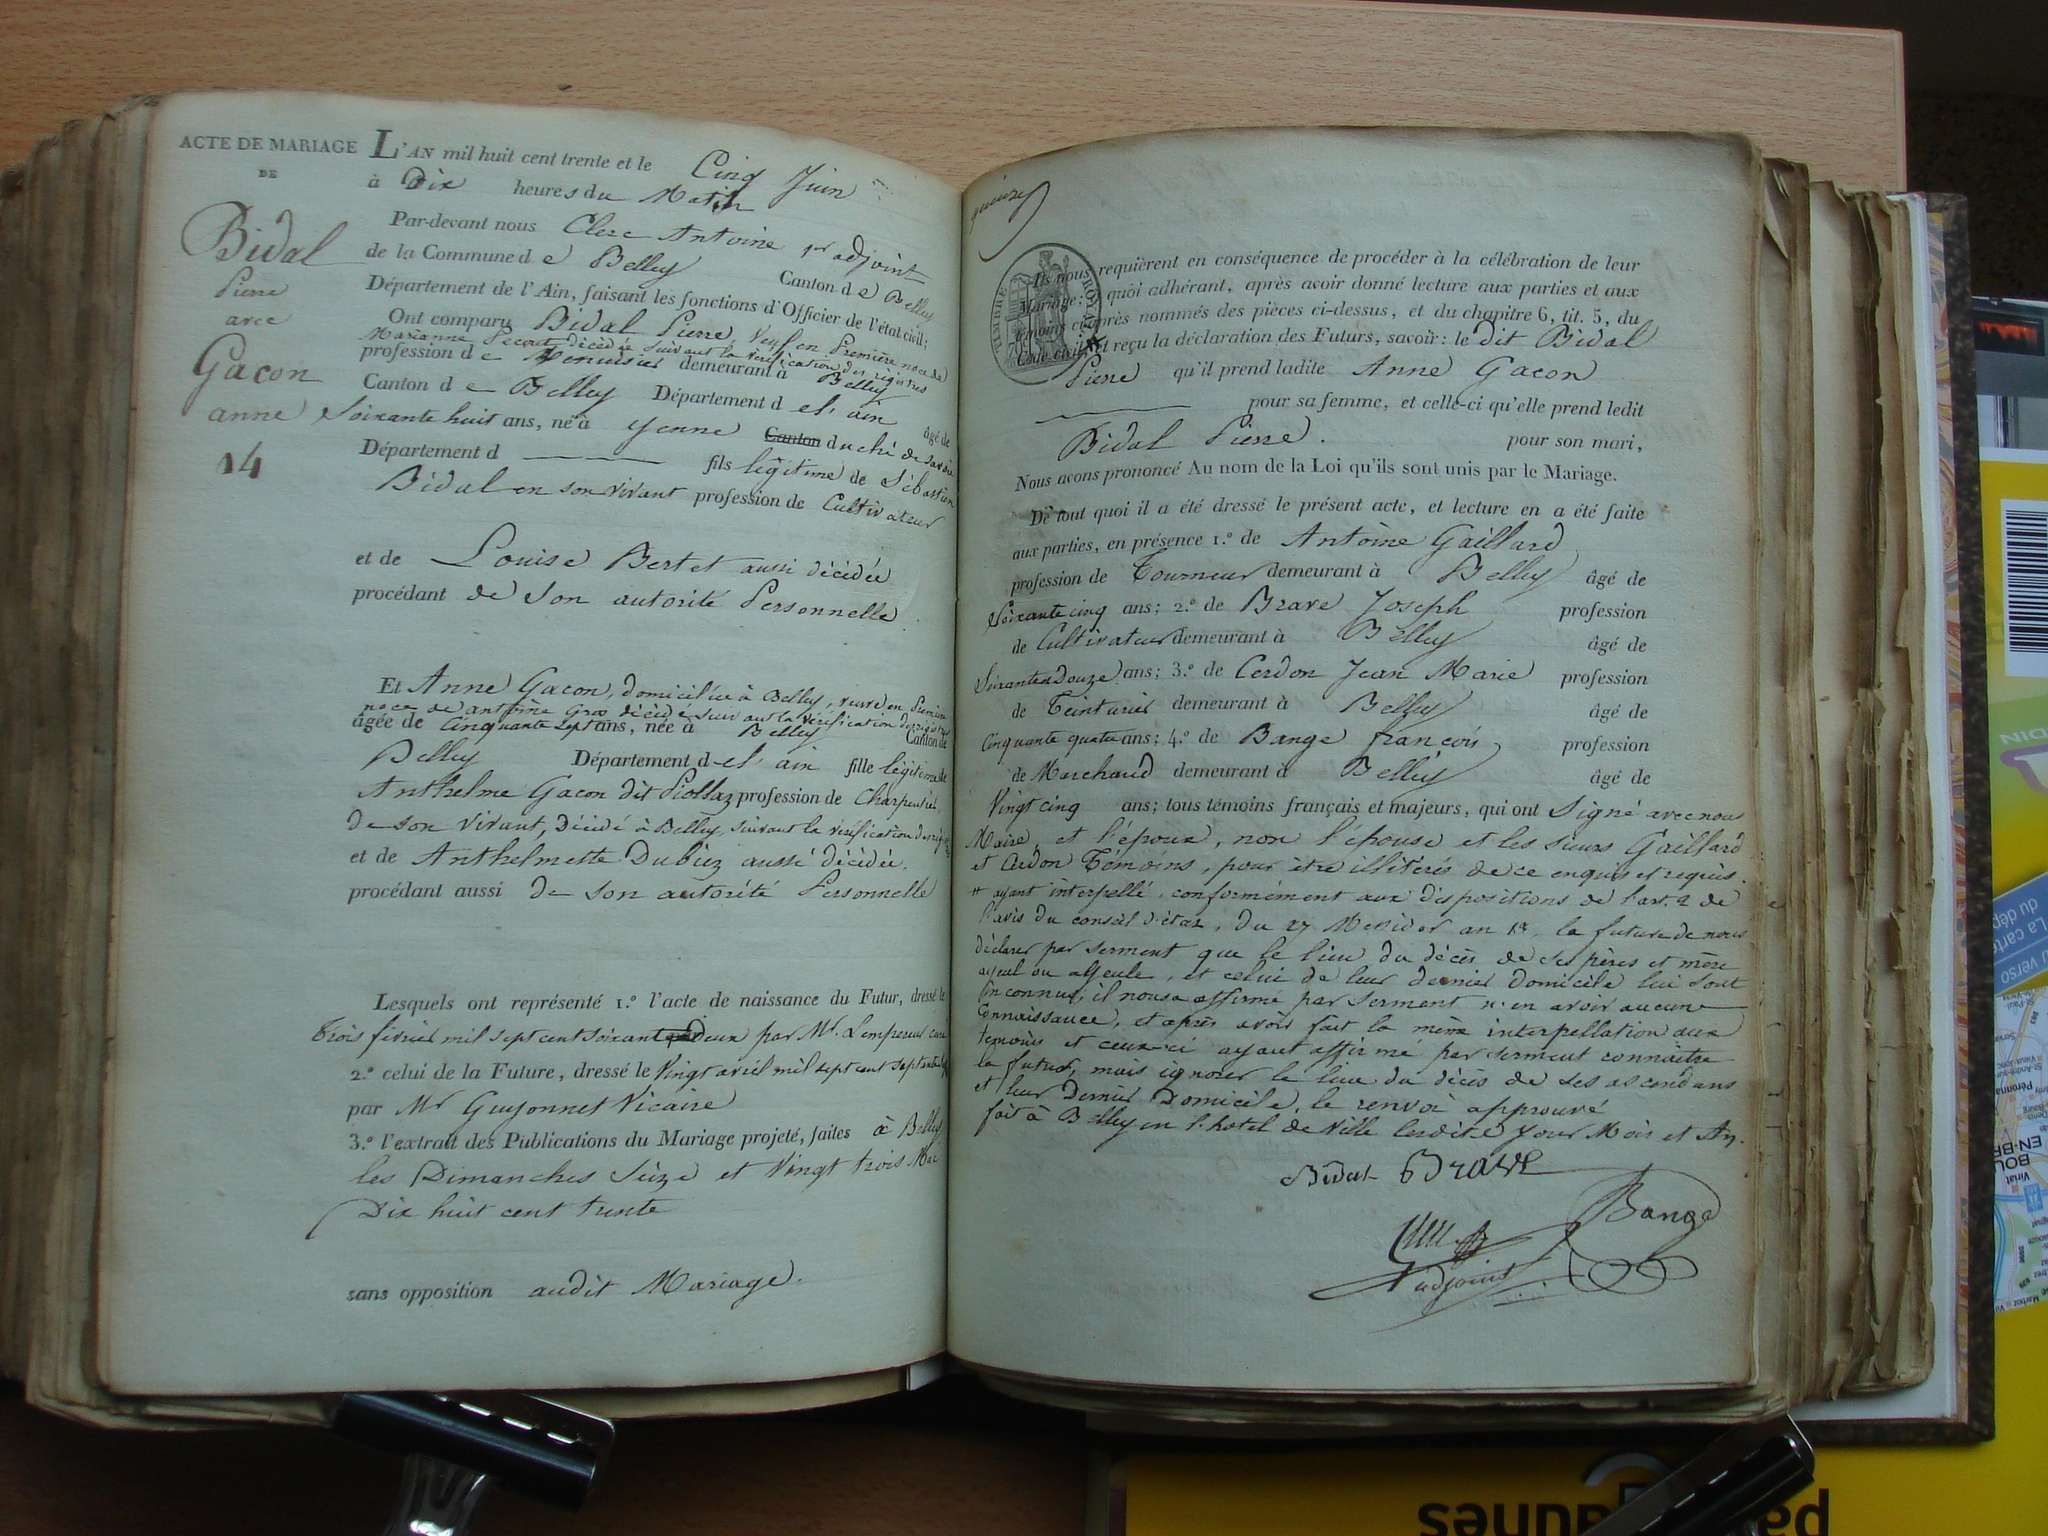 ACTE DE MARIAGE
DE
Bidal
Pierre
avec
Gacon
anne
14
L'AN mil huit cent trente et le Cinq Juin
à Dix heures du Matin
Par-devant nous Clerc Antoine 1er adjoint
de la Commune de Belley Canton de Belley
Département de l'Ain, faisant les fonctions d'Officier de l'état civil;
Ont comparu Bidal Pierre, Veuf en Première noce de
Marianne décédée suivant la vérification des registres
profession de Menuisier demeurant à Belley
Canton de Belley Département del' ain âgé de
Soixante huit ans, né à yenne Canton duché de Savoie
Département d fils légitime de Sébastien
Bidal en son vivant profession de Cultivateur
et de Louise Bertet aussi décédée
procédant de Son autorité Personnelle.
Et Anne Gacon, domiciliée à Belley, veuve en Première
noce de antoine Gros décédé suivant la vérification des registres
âgée de Cinquante sept ans, née à Belley Canton de
Belley Département del' ain fille légitime de
Anthelme Gacon dit Piollaz profession de Charpentier
de son vivant, Décédé à Belley, suivant la vérification des
et de Anthelmette Dubiez aussi décédée.
procédant aussi de Son autorité Personnelle
Lesquels ont représenté 1.º l'acte de naissance du Futur, dressé le
Trois février mil sept cent soixante Deux par Mr. Lempereur curé
2.º celui de la Future, dressé le Vingt avril mil sept cent
par Mr Guyonnet Vicaire
3.º l'extrait des Publications du Mariage projeté, faites à Belley
les Dimanches Seize et Vingt trois Mai
Dix huit cent trente
sans opposition audit Mariage.
quinze
TIMBRE ROYAL
Ils nous requièrent en conséquence de procéder à la célébration de leur
Mariage: à quoi adhérant, après avoir donné lecture aux parties et aux
témoins ci-après nommés des pièces ci-dessus, et du chapitre 6, tit. 5, du
Code civil, et reçu la déclaration des Futurs, savoir: le dit Bidal
Pierre qu'il prend ladite Anne Gacon
pour sa femme, et celle-ci qu'elle prend ledit
Bidal Pierre. pour son mari,
Nous avons prononcé Au nom de la Loi qu'ils sont unis par le Mariage.
De tout quoi il a été dressé le présent acte, et lecture en a été faite
aux parties, en présence 1.º de Antoine Gaillard
profession de Tourneur demeurant à Belley âgé de
Soixante cinq ans; 2.º de Brave Joseph profession
de Cultivateur demeurant à Belley âgé de
Soixante Douze ans; 3.º de Cerdon Jean Marie profession
de Teinturier demeurant à Belley âgé de
Cinquante quatre ans; 4.º de Bange françois profession
de Marchand demeurant à Belley âgé de
Vingt cinq ans; tous témoins français et majeurs, qui ont Signé avec nous
Maire et l'époux, non l'épouse et les sieurs Gaillard
et Cerdon Témoins, pour être illiterés de ce enquis et requis.
# ayant interpellé, conformément aux dispositions de l'art. 2 de
l'avis du conseil d'état, du 27 Messidor an 13, la future de nous
déclarer par serment que le lieu du décès de ses pères et mère
ayeul ou ayeule, et celui de leur dernier domicile lui sont
inconnus, il nous a affirmé par serment n'en avoir aucune
Connaissance, et après avoir fait la même interpellation aux
temoins et ceux-ci ayant affirmé par serment connaître
le futur, mais ignorer le lieu du décès de ses ascendans
et leur Dernier Domicile. le renvoi approuvé
fait à Belley en l'hotel de Ville lesdits Jour Mois et An.
Bidal BRAVE
Bange
adjoint